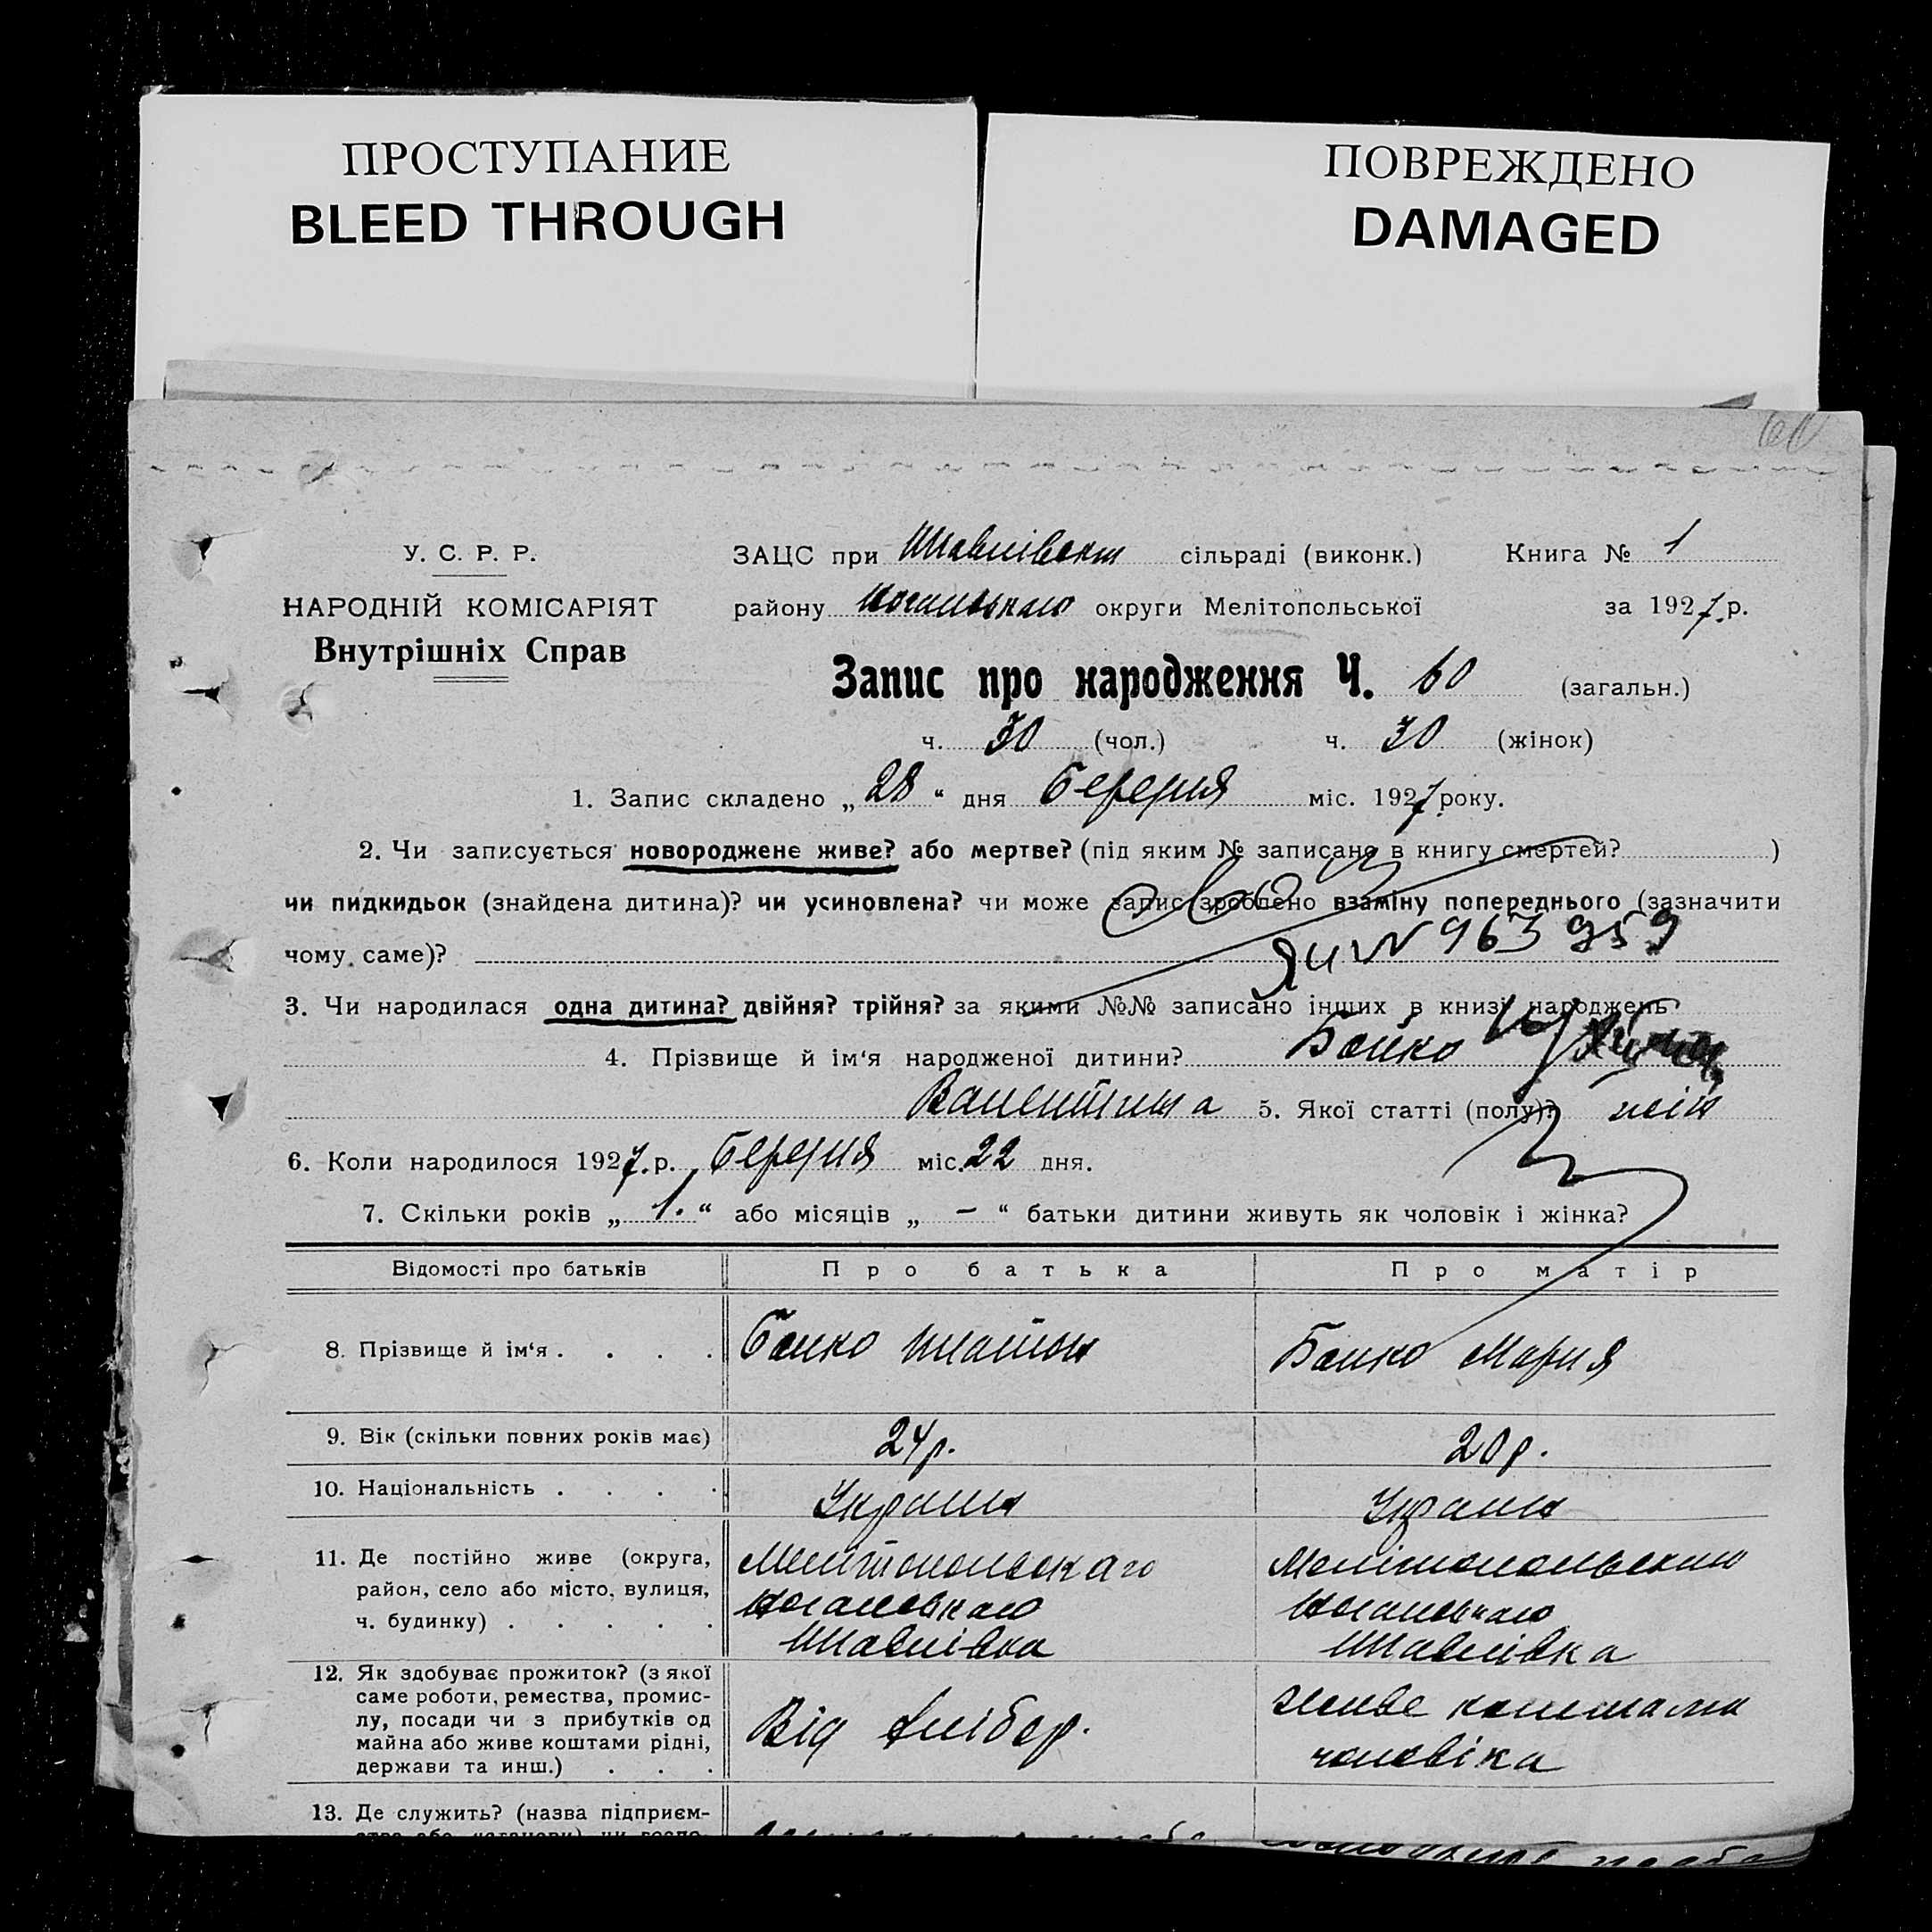 ПРОСТУПАНИЕ
BLEED THROUGH
ПОВРЕЖДЕНО
DAMAGED
60
У. С. Р. Р.
НАРОДНІЙ КОМІСАРІЯТ
Внутрішніх Справ
ЗАЦС при сільраді (виконк.) Книга № 1
району округи Мелітопольської за 1927 р.
Запис про народження Ч. 60 (загальн.)
ч. 30 (чол.) ч. 30 (жінок)
1. Запис складено „28“ дня березня міс. 1927 року.
2. Чи записується новороджене живе? або мертве? (під яким № записано в книгу смертей? )
чи пидкидьок (знайдена дитина)? чи усиновлена? чи може запис зроблено взаміну попереднього (зазначити
чому саме)?
963 959
3. Чи народилася одна дитина? двійня? трійня? за якими №№ записано інших в книзі народжень
4. Прізвище й ім‘я народженої дитини? Бойко
Валентина 5. Якої статті (полу)?
6. Коли народилося 1927 р. березня міс. 22 дня.
7. Скільки років „1.“ або місяців „—“ батьки дитини живуть як чоловік і жінка?
Відомості про батьків Про батька Про матір
8. Прізвище й ім‘я . . . . Бойко Платон Бойко Мария
9. Вік (скільки повних років має) 24 р. 20 р.
10. Національність . . . .
11. Де постійно живе (округа,
район, село або місто, вулиця,
ч. будинку) . . . . .
Мелітопольскаго
Шавлівка Шавлівка
12. Як здобуває прожиток? (з якої
саме роботи, ремества, промис-
лу, посади чи з прибутків од
майна або живе коштами рідні,
держави та инш.) . . .
Від хлібор.
Живе коштами
чоловіка
13. Де служить? (назва підприєм-